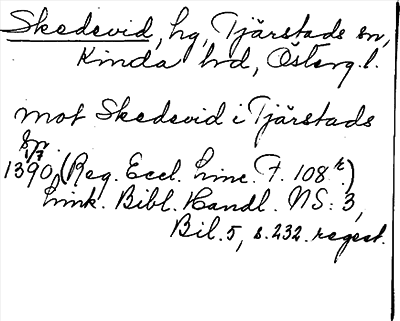 Skedevid, hg, Tjärstads sn,
Kinda hd, Österg. l.
mot Skedevid i Tjärstads
sn.
1/7
1390, (Reg. Eccl. Linc. F. 108 r.)
Link. Bibl. Handl. NS: 3,
Bil. 5, s. 232. regest.